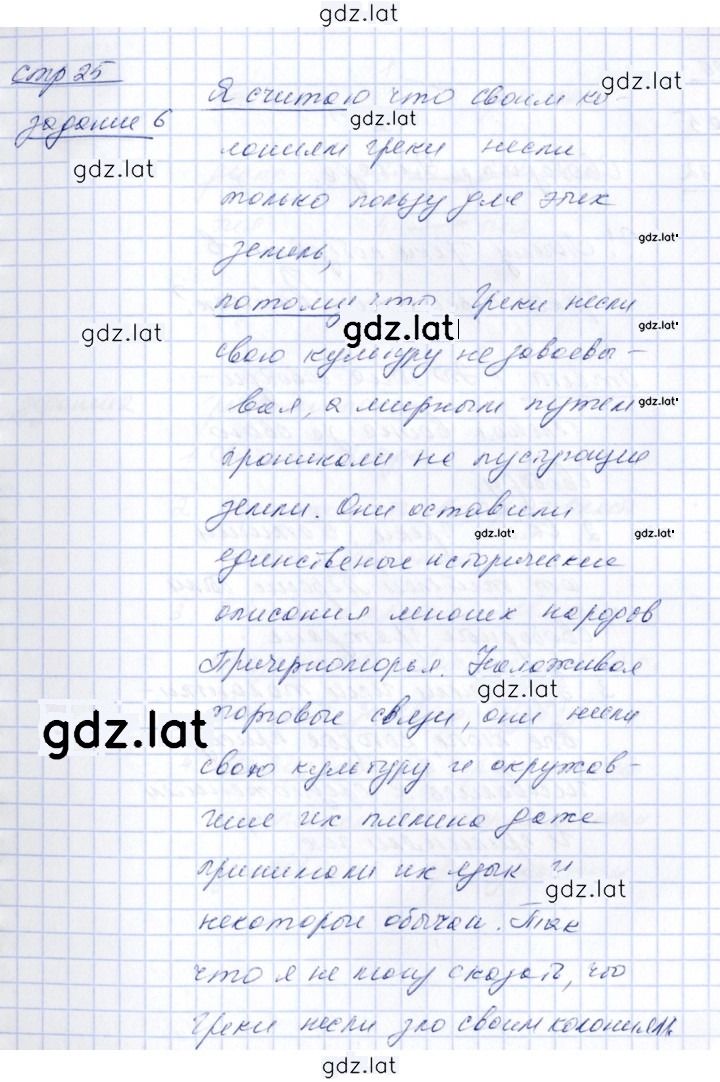 gdz.lat
стр 25
Я считаю что своим ко-
gdz.lat
задание 6
gdz.lat
gdz.lat
лониям греки несли
только пользу для этих
земель,
gdz.lat
потому что Греки несли
gdz.lat
gdz.lat
gdz.lat
свою культуру не завоевы-
вая, а мирным путем
gdz.lat
проникали на пустующие
земли. Они оставили
gdz.lat
gdz.lat
единственые исторические
описания многих народов
Причерноморья. Налаживая
gdz.lat
торговые связи, они несли
gdz.lat
свою культуру и окружав-
шие их племена даже
принимали их язык и
gdz.lat
некоторые обычаи. Так
что я не могу сказать, что
Греки несли зло своим колониям.
gdz.lat